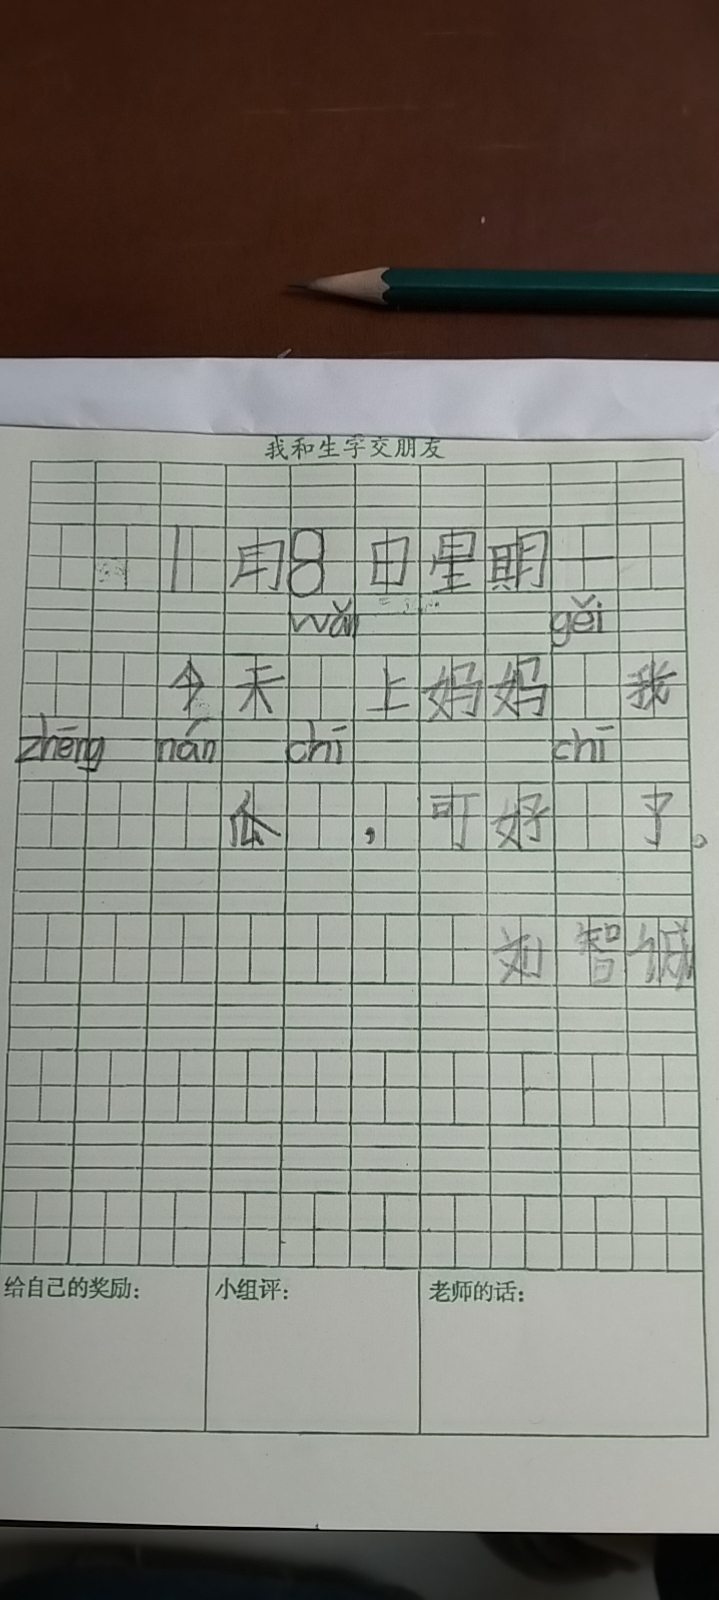 我和生字交朋友
1月8日星期一
wǎn gěi
今天 上妈妈 我
zhēng nán chī chī
瓜 ，可好 了。
刘智诚
给自己的奖励： 小组评： 老师的话：